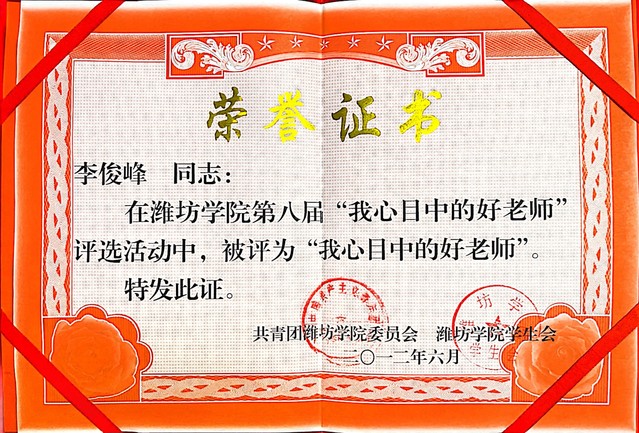 荣誉证书
李俊峰 同志：
在潍坊学院第八届“我心目中的好老师”
评选活动中，被评为“我心目中的好老师”。
特发此证。
共青团潍坊学院委员会 潍坊学院学生会
二〇一二年六月